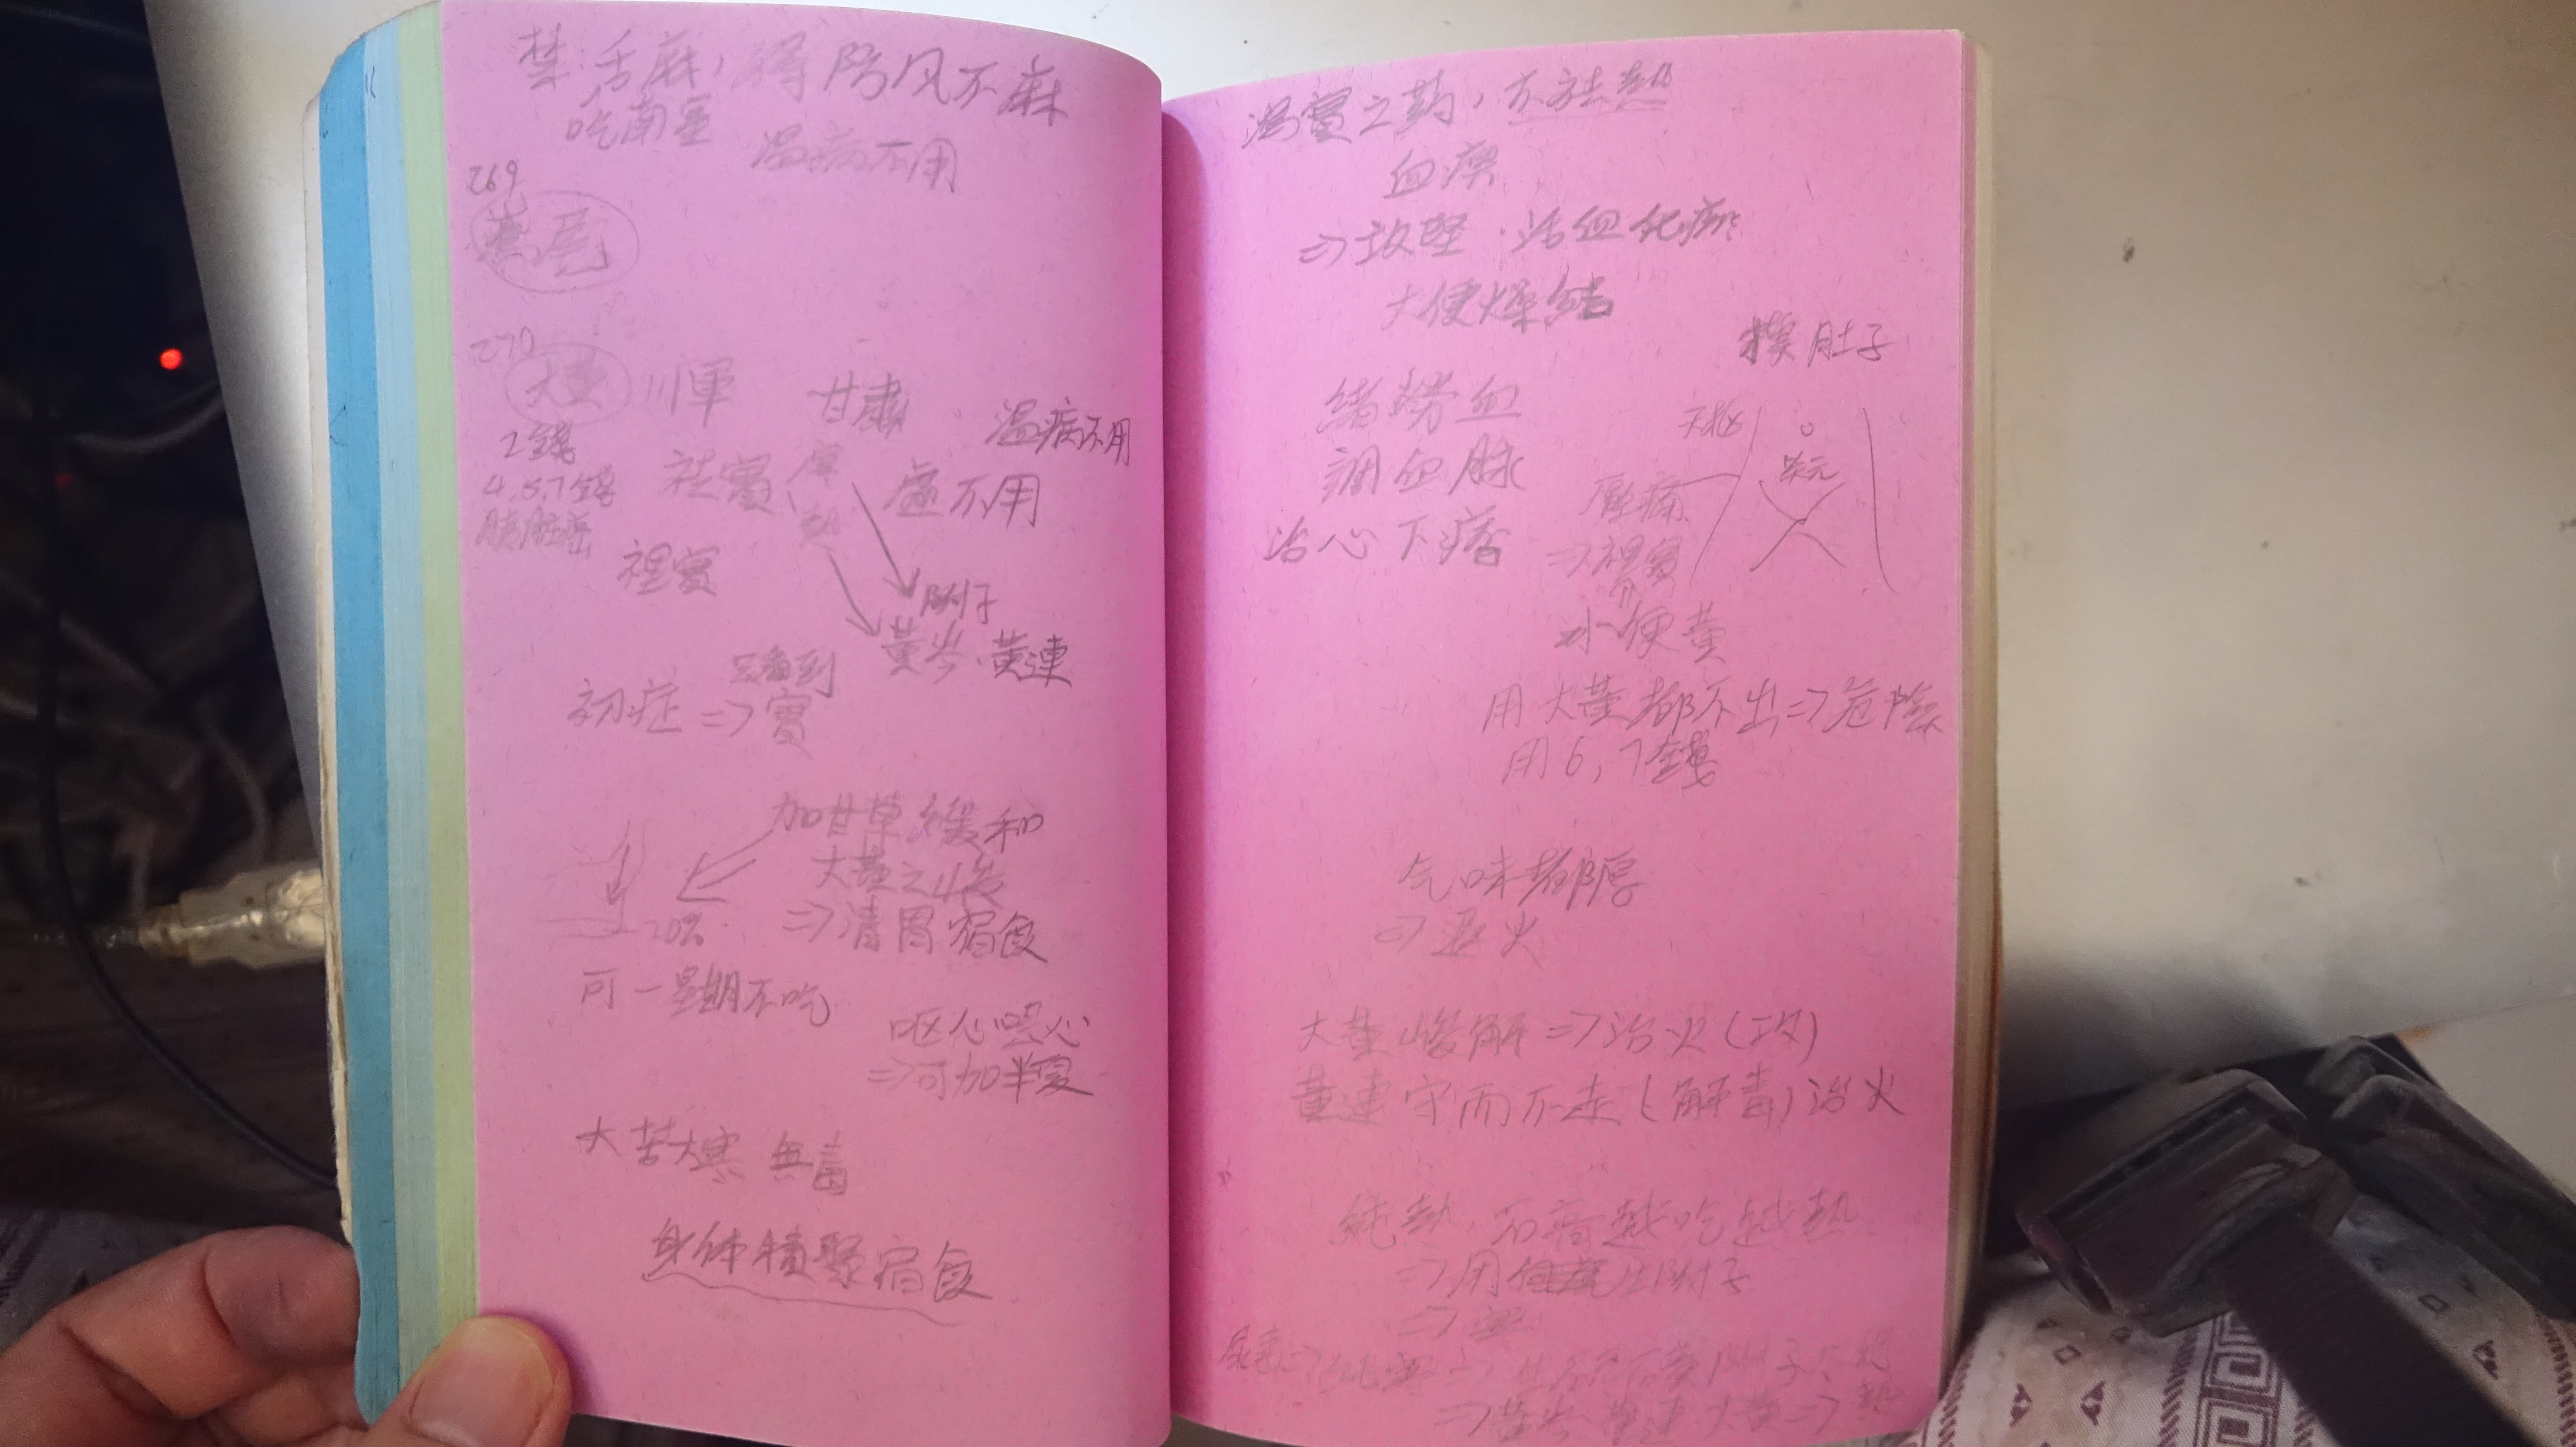 禁:舌麻,得防风不麻
吃南星
温病不用
269
鳶尾
270
大黄 川軍 甘肅 温病不用
2錢
4,5,7錢
胰臟癌
祛實 寒 熱 虛不用
裡實
附子
黄芩、黄連
只看到
初症⇒實
加甘草緩和
大黄之峻
⇒清胃宿食
20%
可一星期不吃
呕心噁心
⇒可加半夏
大苦大寒 無毒
身体積聚宿食
瀉實之药,
血瘀
⇒攻堅、活血化瘀
大便燥結
摸肚子
天樞
关元
壓痛
⇒裡實
調血脉
治心下痞
小便黄
用大黄都不出⇒危险
用6,7錢
气味都厚
⇒退火
大黄峻解⇒治火(攻)
黄連守而不走(解毒)治火
純熱,石膏越吃越熱
⇒用 附子
尿毒⇒
⇒黄芩、黄連、大黄⇒熱